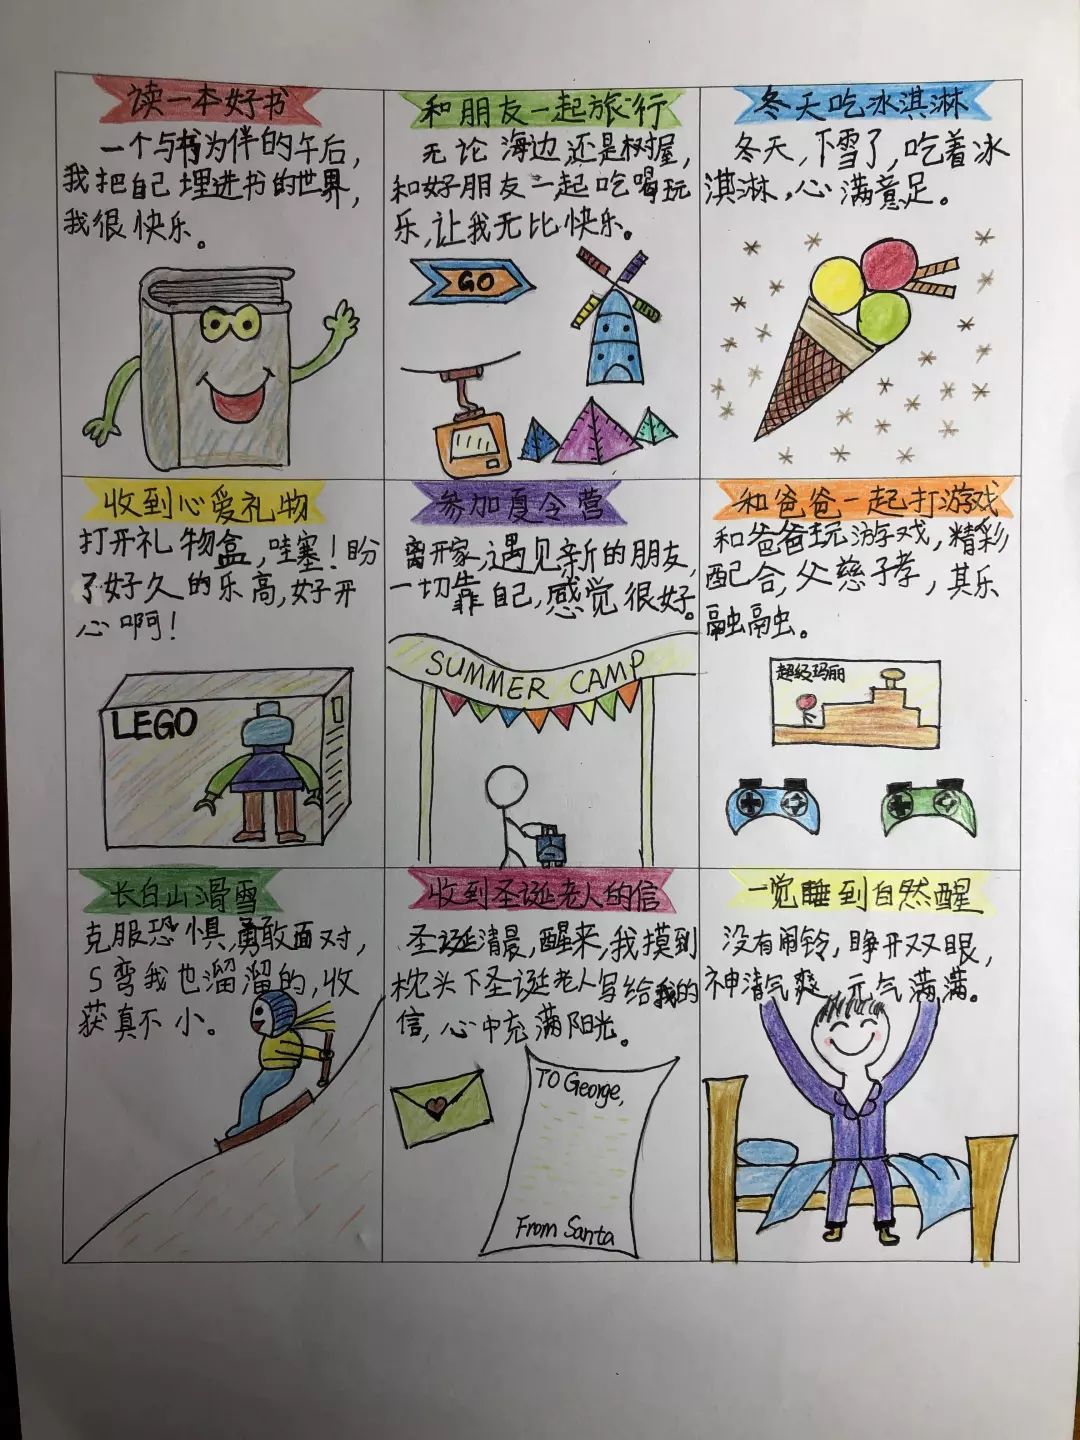 读一本好书
一个与书为伴的午后，
我把自己埋进书的世界，
我很快乐。
和朋友一起旅行
无论海边还是树屋，
和好朋友一起吃喝玩
乐，让我无比快乐。
GO
冬天吃冰淇淋
冬天，下雪了，吃着冰
淇淋，心满意足。
收到心爱礼物
打开礼物盒，哇塞！盼
了好久的乐高，好开
心啊！
LEGO
参加夏令营
离开家，遇见新的朋友，
一切靠自己，感觉很好。
SUMMER CAMP
和爸爸一起打游戏
和爸爸玩游戏，精彩
配合，父慈子孝，其乐
融融。
超级玛丽
长白山滑雪
克服恐惧，勇敢面对，
S弯我也溜溜的，收
获真不小。
收到圣诞老人的信
圣诞清晨，醒来，我摸到
枕头下圣诞老人写给我的
信，心中充满阳光。
TO George,
From Santa
一觉睡到自然醒
没有闹铃，睁开双眼，
神清气爽，元气满满。